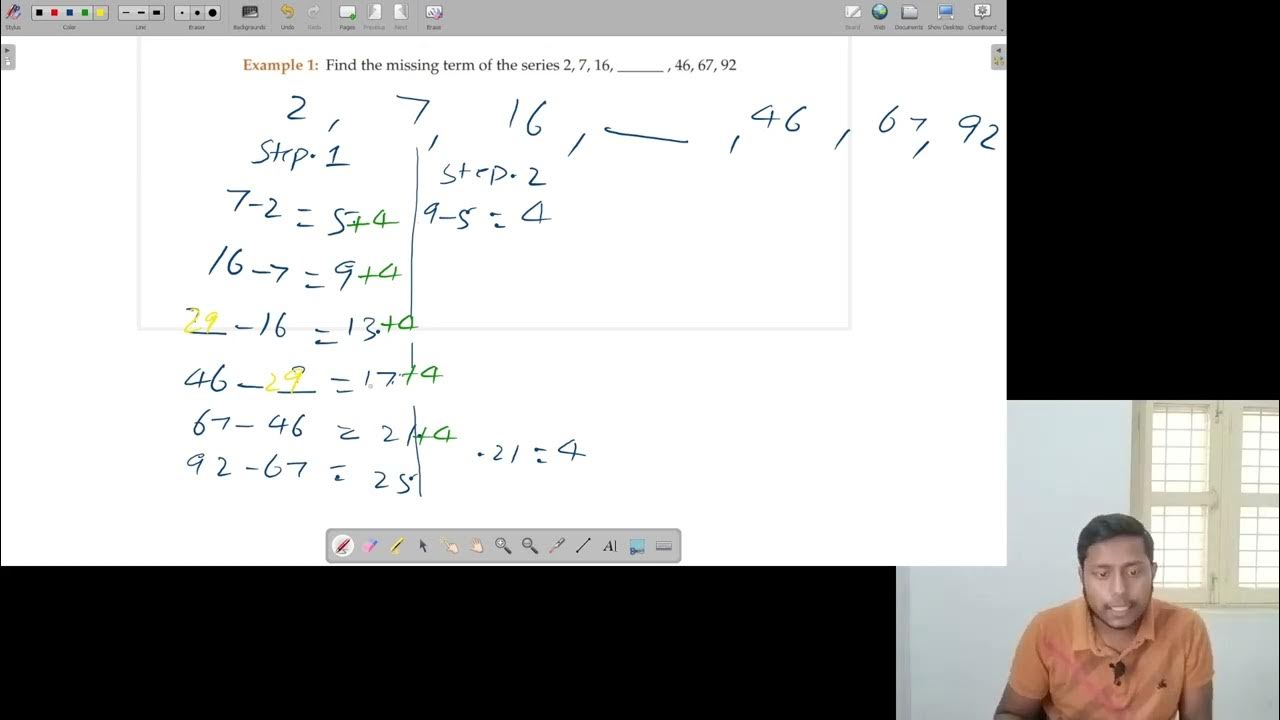 Stylus Color Line Eraser Backgrounds Undo Redo Pages Previous Next Erase Board Web Documents Show Desktop OpenBoard
Example 1: Find the missing term of the series 2, 7, 16, ______ , 46, 67, 92
2, 7, 16, ___, 46, 67, 92
Step. 1
Step. 2
7-2 = 5+4
9-5 = 4
16-7 = 9+4
29 - 16 = 13+4
46 - 29 = 17+4
67 - 46 = 21+4
.21 = 4
92 - 67 = 25
AI